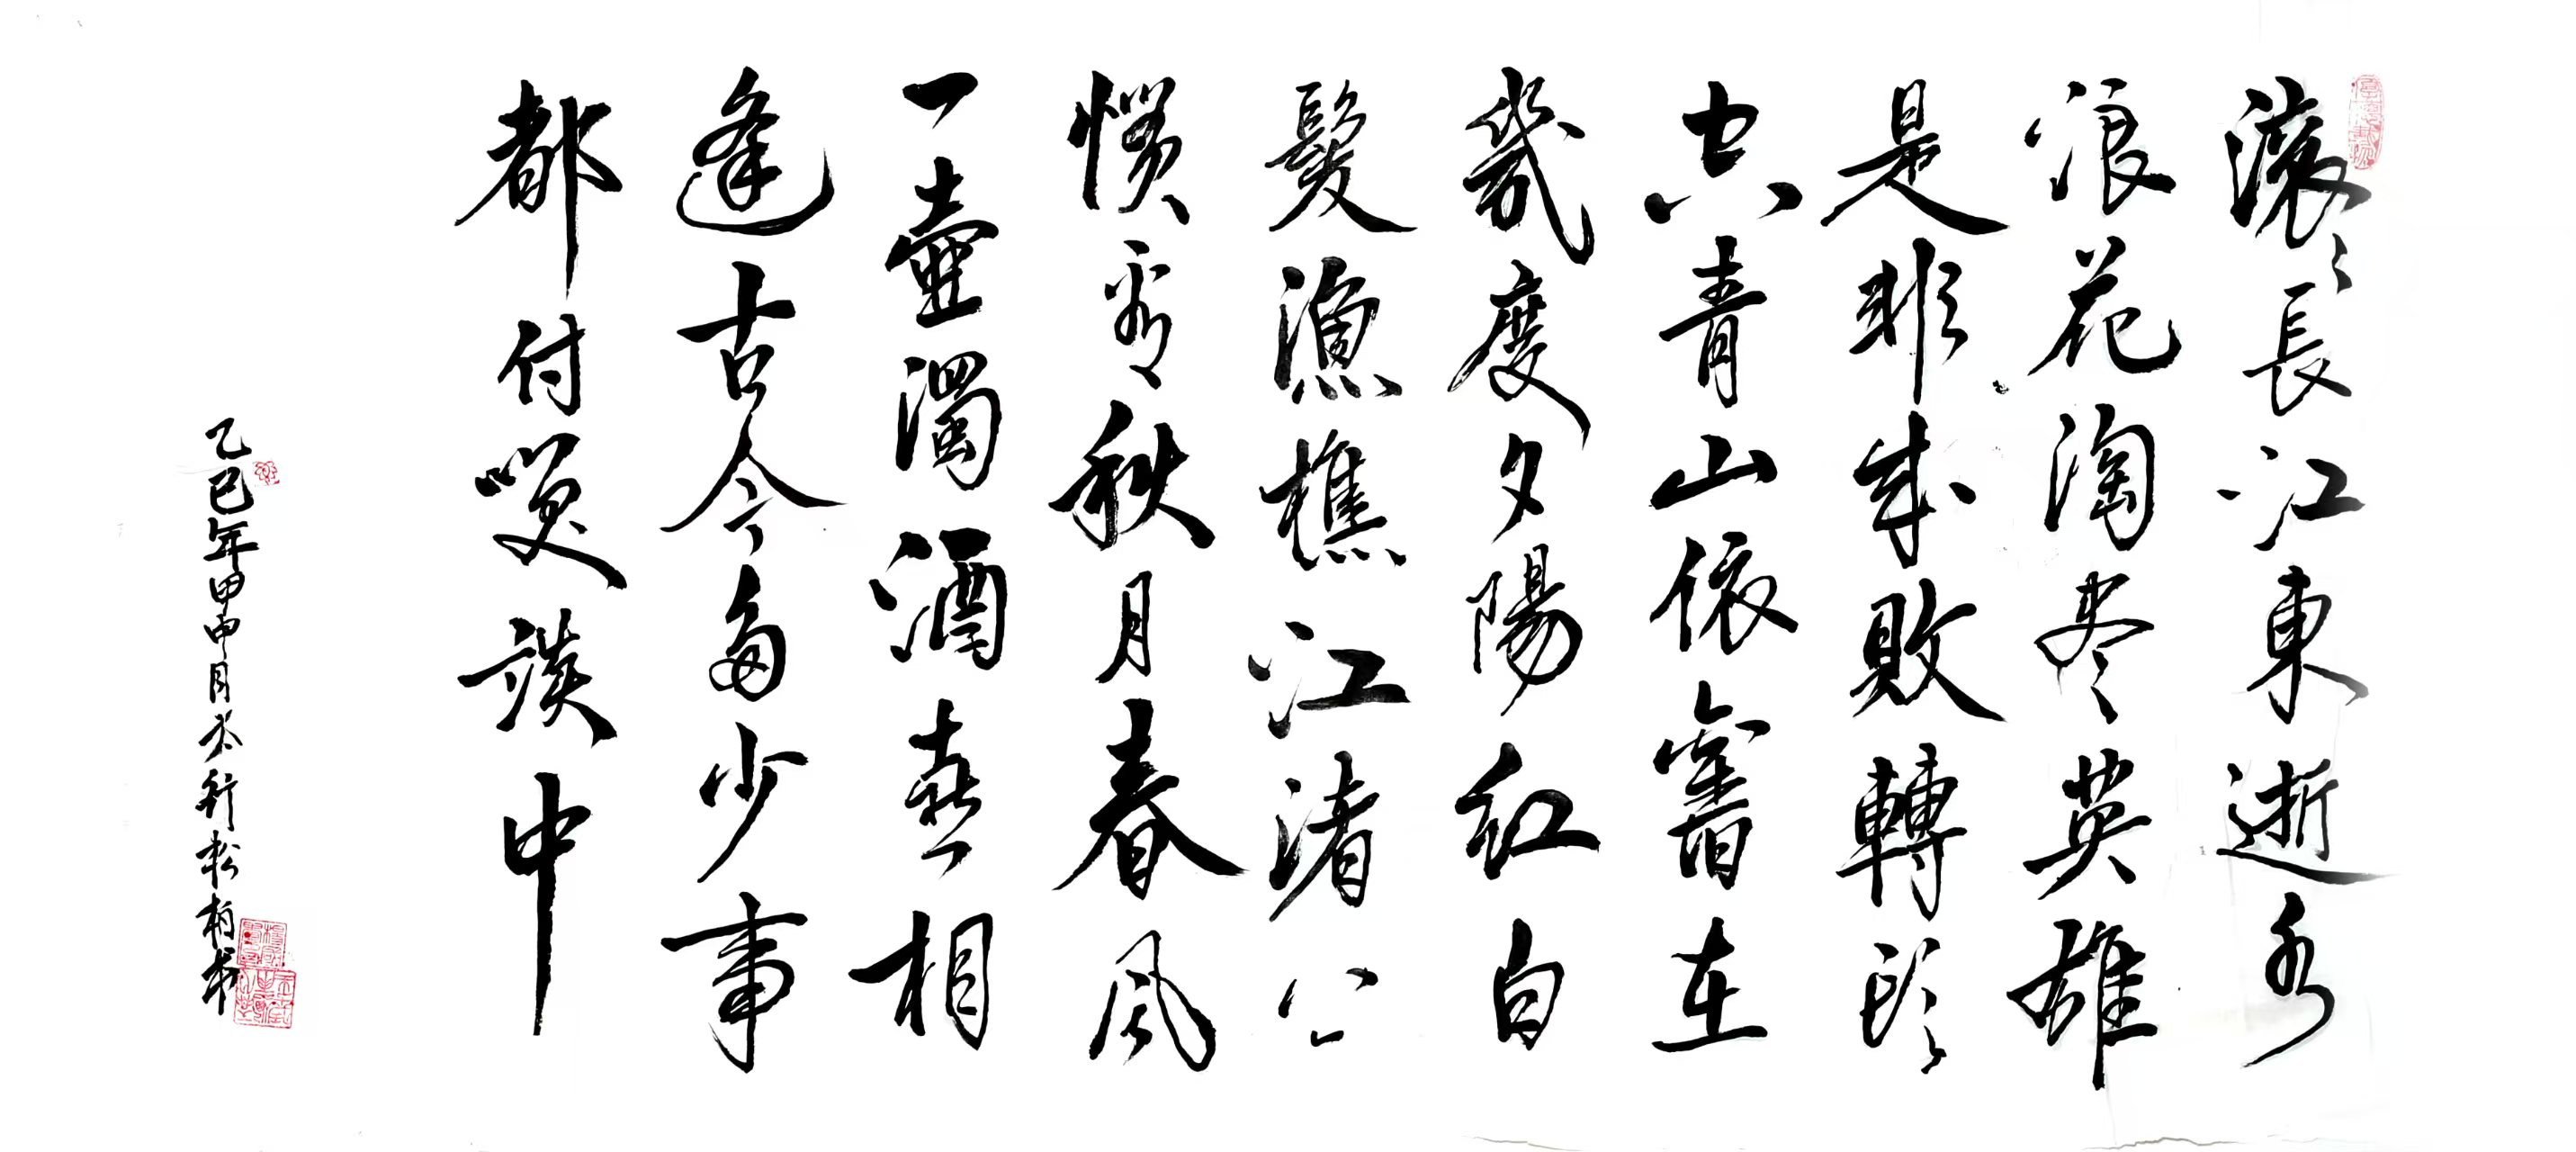 滚〻長江東逝水
浪花淘尽英雄
是非成敗轉頭
空青山依舊在
幾度夕陽紅白
髮漁樵江渚上
慣看秋月春風
一壺濁酒喜相
逢古今多少事
都付笑談中
乙巳年甲申月太行松柏書